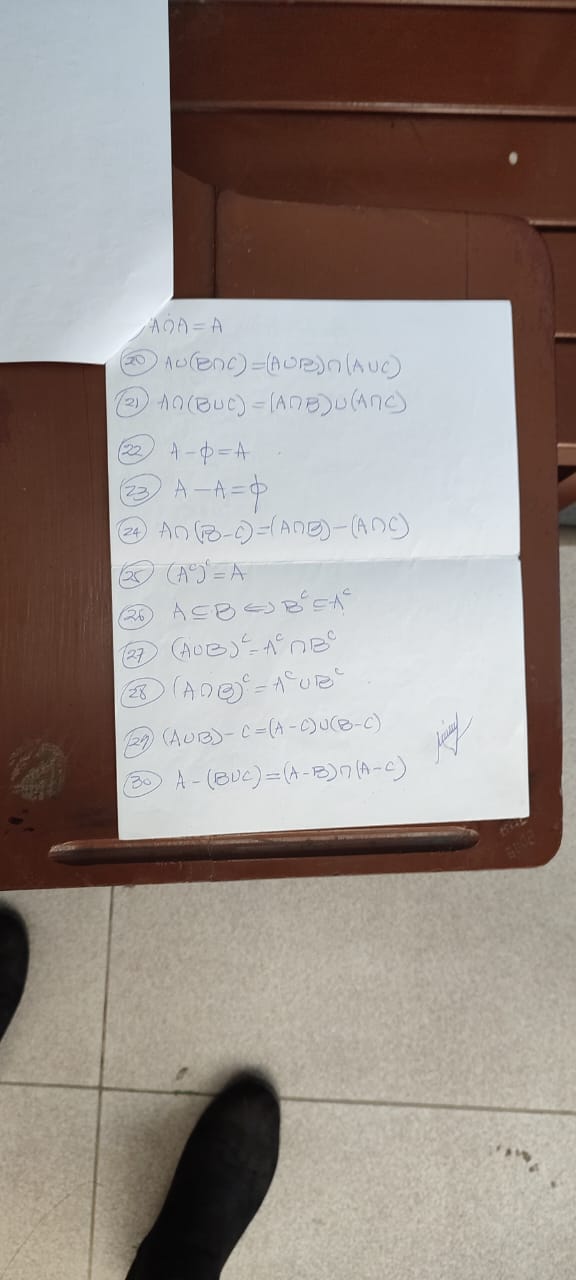 A∩A=A
20 A∪(B∩C)=(A∪B)∩(A∪C)
21 A∩(B∪C)=(A∩B)∪(A∩C)
22 A-ϕ=A
23 A-A=ϕ
24 A∩(B-C)=(A∩B)-(A∩C)
25 (Aᶜ)ᶜ=A
26 A⊆B⟺Bᶜ⊆Aᶜ
27 (A∪B)ᶜ=Aᶜ∩Bᶜ
28 (A∩B)ᶜ=Aᶜ∪Bᶜ
29 (A∪B)-C=(A-C)∪(B-C)
30 A-(B∪C)=(A-B)∩(A-C)